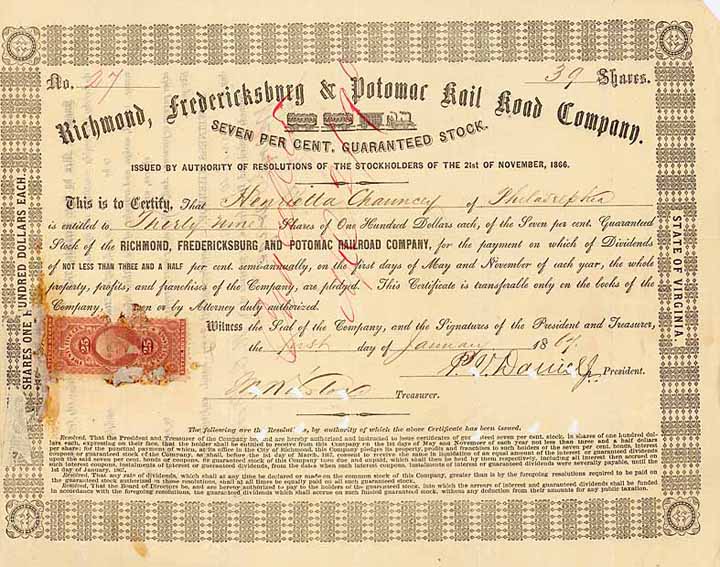 No. 27
39 Shares.
Richmond, Fredericksburg & Potomac Rail Road Company.
SEVEN PER CENT. GUARANTEED STOCK.
ISSUED BY AUTHORITY OF RESOLUTIONS OF THE STOCKHOLDERS OF THE 21st OF NOVEMBER, 1866.
This is to Certify, That Henrietta Chauncey of Philadelphia
is entitled to Thirty Nine Shares of One Hundred Dollars each, of the Seven per cent. Guaranteed
Stock of the RICHMOND, FREDERICKSBURG AND POTOMAC RAILROAD COMPANY, for the payment on which of Dividends
of NOT LESS THAN THREE AND A HALF per cent. semi-annually, on the first days of May and November of each year, the whole
property, profits, and franchises of the Company, are pledged. This Certificate is transferable only on the books of the
Company, or by Attorney duly authorized.
Witness the Seal of the Company, and the Signatures of the President and Treasurer,
the first day of January 1867.
P. V. Daniel Jr. President.
Treasurer.
SHARES ONE HUNDRED DOLLARS EACH.
STATE OF VIRGINIA.
25 25
The following are the Resolutions, by authority of which the above Certificate has been issued.
Resolved, That the President and Treasurer of the Company be, and are hereby authorized and instructed to issue certificates of guaranteed seven per cent. stock, in shares of one hundred dol-
lars each, expressing on their face, that the holder shall be entitled to receive from this Company on the 1st days of May and November of each year not less than three and a half dollars
per share; for the punctual payment of which, at its office in the City of Richmond, this Company pledges its property, profits and franchises to such holders or the seven per cent. bonds, interest
coupons or guaranteed stock of the Company, as shall, before the 1st day of March, 1867, consent to receive the same in liquidation of an equal amount of the interest or guaranteed dividends
upon the said seven per cent. bonds, or coupons, or guaranteed stock of this Company then due and unpaid, which shall then be held by them respectively, including all interest then accrued on
such interest coupons, instalments of interest or guaranteed dividends, from the dates when such interest coupons, instalments of interest or guaranteed dividends were severally payable, until the
1st day of January, 1867.
Resolved, That any rate of dividends, which shall at any time be declared or made on the common stock of this Company, greater than is by the foregoing resolutions required to be paid on
the guaranteed stock authorized in those resolutions, shall at all times be equally paid on all such guaranteed stock.
Resolved, That the Board of Directors be, and are hereby authorized to pay to holders of the guaranteed stock, into which the arrears of interest and guaranteed dividends shall be funded
in accordance with the foregoing resolutions, the guaranteed dividends which shall accrue on such funded guaranteed stock, without any deduction from their amounts for any public taxation.